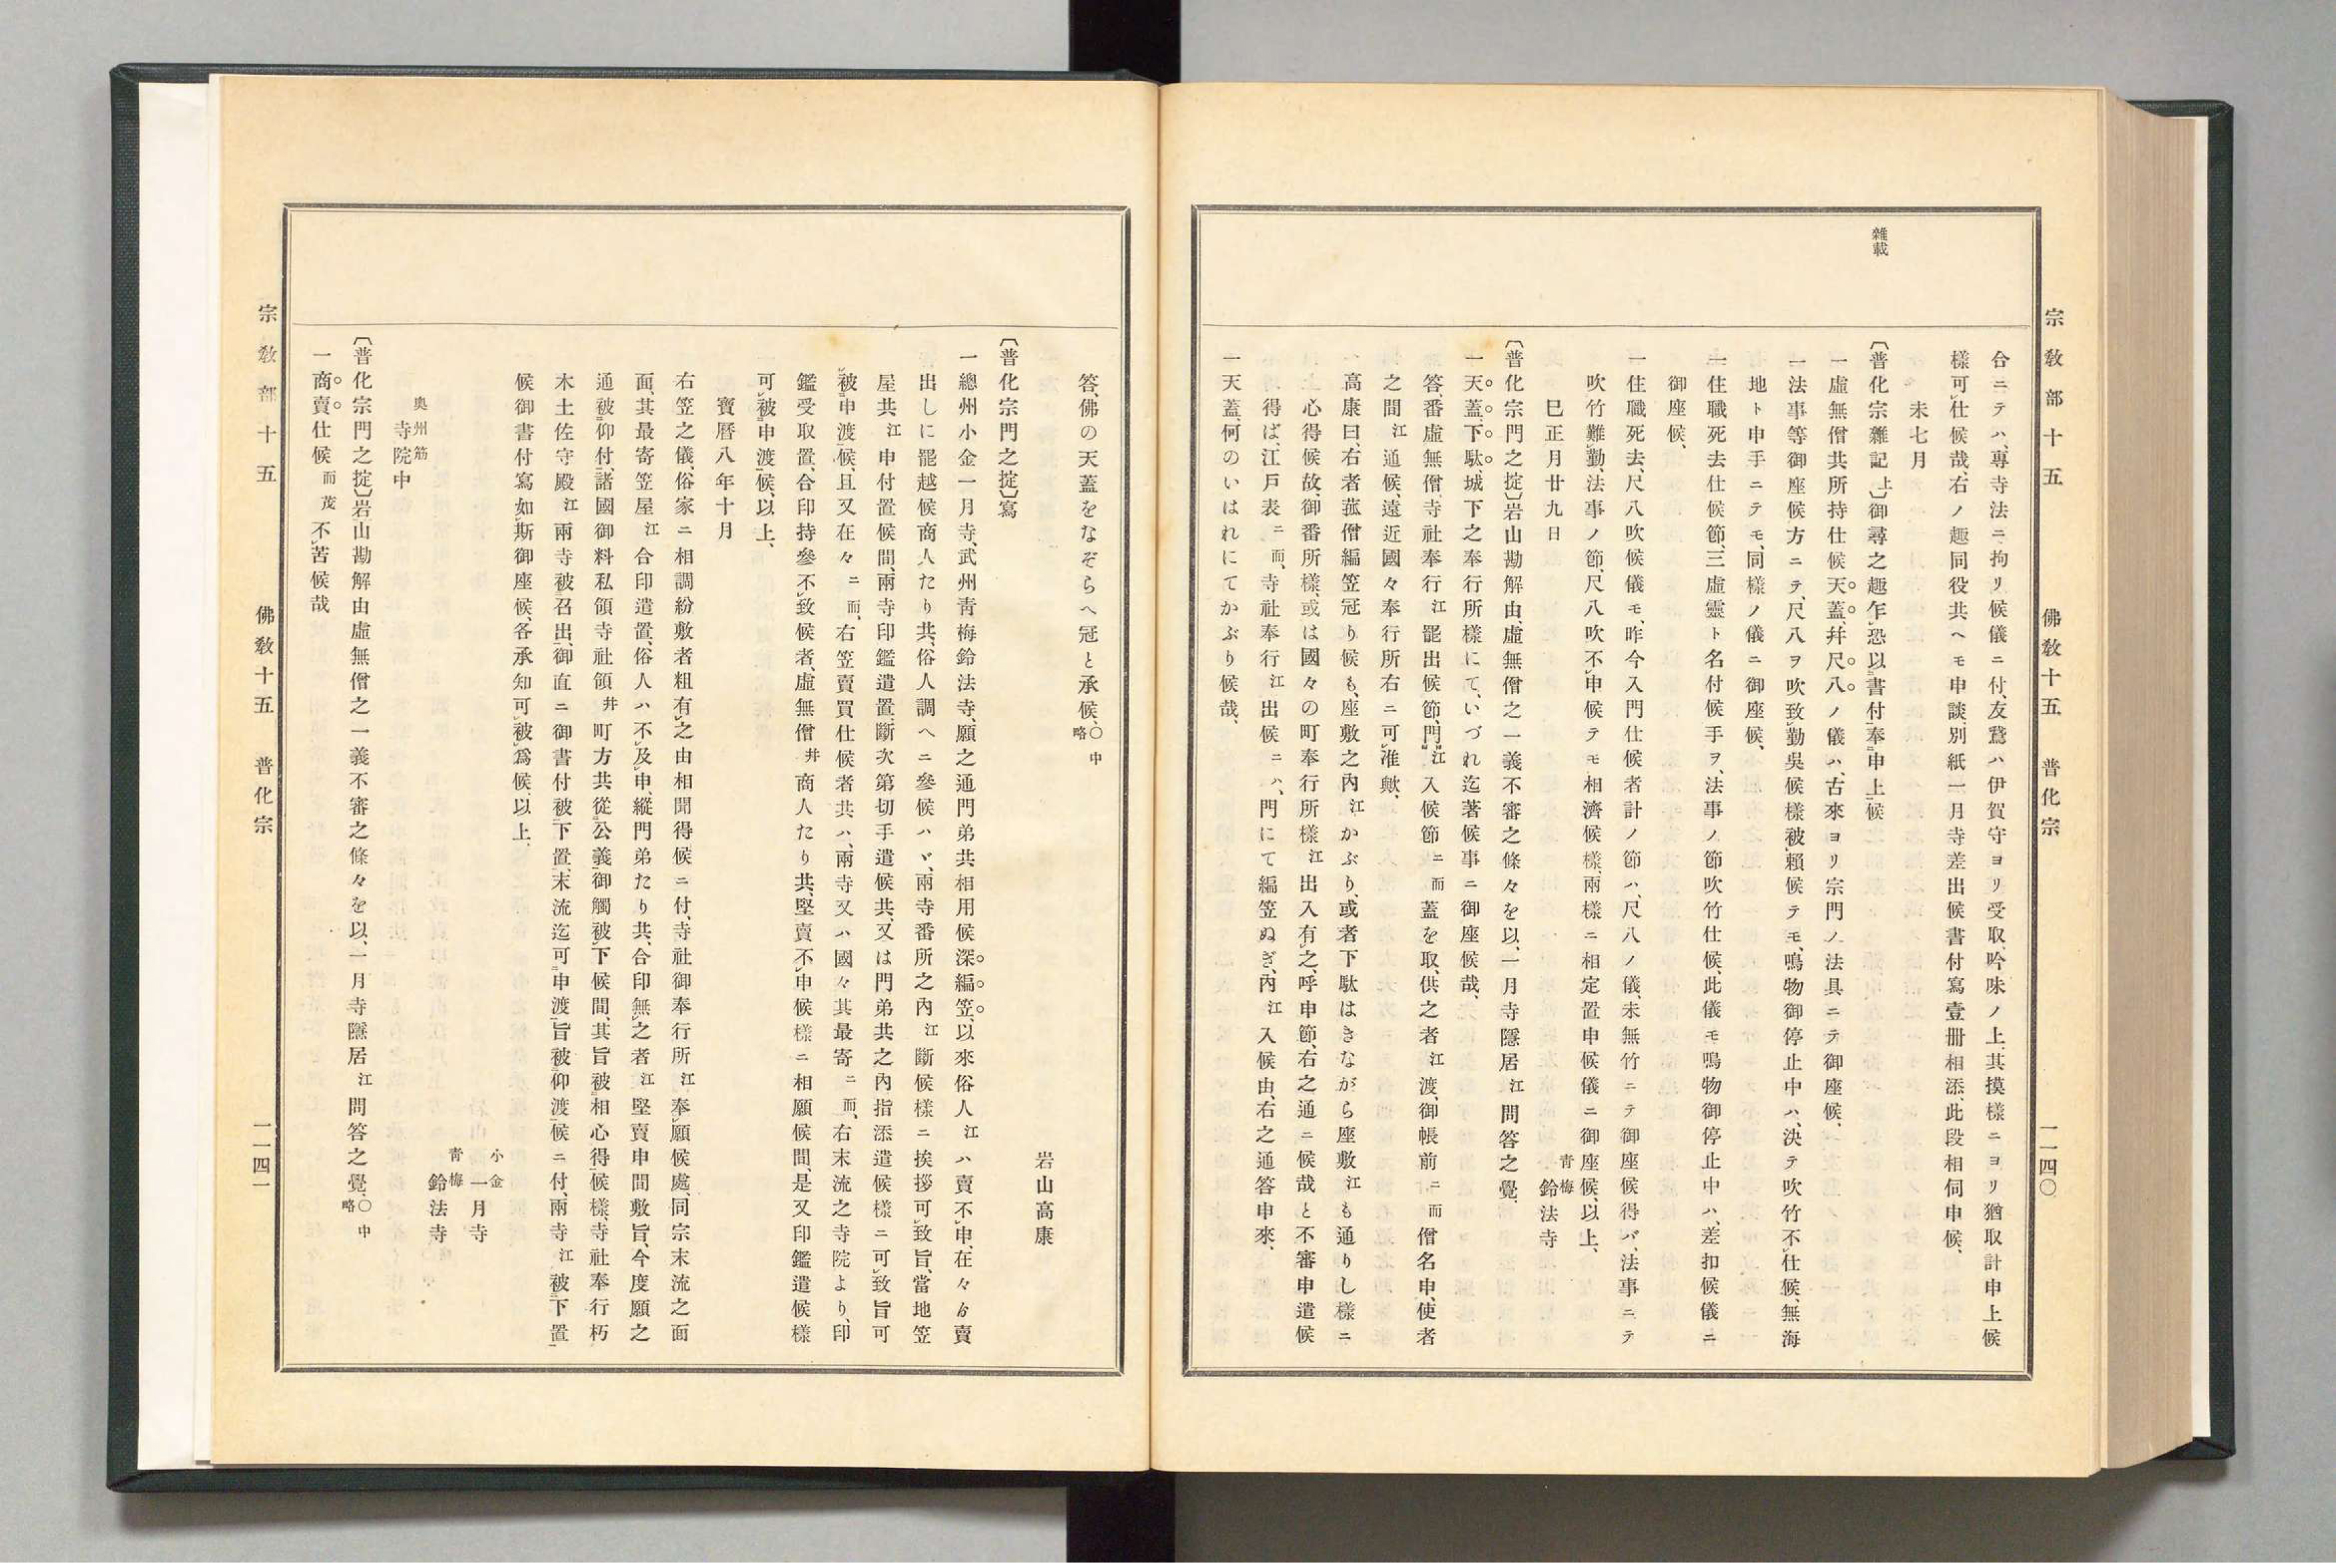 宗教部十五　佛教十五　普化宗　一一四〇
雜載
合ニテハ、專寺法ニ拘リ候儀ニ付、友鵞ハ伊賀守ヨリ受取、吟味ノ上、其摸樣ニヨリ猶取計申上候
樣可レ仕候哉、右ノ趣同役共ヘモ申談、別紙一月寺差出候書付寫壹册相添、此段相伺申候、
未七月
〔普化宗雜記上〕御尋之趣乍レ恐以二書付一奉二申上一候
一虛無僧共所持仕候天蓋、幷尺八ノ儀ハ、古來ヨリ宗門ノ法具ニテ御座候、
一法事等御座候方ニテ、尺八ヲ吹致レ勤吳候樣被レ賴候テモ、鳴物御停止中ハ、決テ吹竹不レ仕候、無海
地ト申手ニテモ、同樣ノ儀ニ御座候、
一住職死去仕候節、三虛靈ト名付候手ヲ、法事ノ節吹竹仕候、此儀モ鳴物御停止中ハ、差扣候儀ニ
御座候、
一住職死去、尺八吹候儀モ、昨今入門仕候者計ノ節ハ、尺八ノ儀、未無竹ニテ御座候得バ、法事ニテ
吹竹難レ勤、法事ノ節、尺八吹不レ申候テモ相濟候樣、兩樣ニ相定置申候儀ニ御座候、以上、
巳正月廿九日　青梅鈴法寺
〔普化宗門之掟〕岩山勘解由、虛無僧之一義不審之條々を以、一月寺隱居江問答之覺、
一天蓋、下駄、城下之奉行所樣にて、いづれ迄著候事ニ御座候哉、
答、番虛無僧、寺社奉行江罷出候節、門江入候節ニ而蓋を取、供之者江渡、御帳前ニ而僧名申、使者
之間江通候、遠近國々奉行所右ニ可レ准歟、
高康曰、右者菰僧編笠冠り候も、座敷之內江かぶり、或者下駄はきながら座敷江も通りし樣ニ
心得候故、御番所樣、或は國々の町奉行所樣江出入有レ之、呼申節、右之通ニ候哉と不審申遣候
得ば、江戶表ニ而、寺社奉行江出候ニハ、門にて編笠ぬぎ、內江入候由、右之通答申來、
一天蓋、何のいはれにてかぶり候哉、
答、佛の天蓋をなぞらへ冠と承候、〇中略
岩山高康
〔普化宗門之掟〕寫
一總州小金一月寺、武州靑梅鈴法寺、願之通門弟共相用候深編笠、以來俗人江ハ賣不レ申、在々ゟ賣
出しに罷越候商人たり共、俗人調へニ參候ハヾ、兩寺番所之內江斷候樣ニ挨拶可レ致旨、當地笠
屋共江申付置候間、兩寺印鑑遣置、斷次第切手遣候共、又は門弟共之內指添遣候樣ニ可レ致旨可
レ被二申渡一候、且又在々ニ而、右笠賣買仕候者共ハ、兩寺又ハ國々其最寄ニ而、右末流之寺院より、印
鑑受取置、合印持參不レ致候者、虛無僧幷商人たり共、堅賣不レ申候樣ニ相願候間、是又印鑑遣候樣
可レ被二申渡一候、以上、
寶曆八年十月
右笠之儀、俗家ニ相調紛敷者粗有レ之由相聞得候ニ付、寺社御奉行所江奉レ願候處、同宗末流之面
面、其最寄笠屋江合印遣置、俗人ハ不レ及レ申、縱門弟たり共、合印無レ之者江堅賣申間敷旨、今度願之
通被二仰付一、諸國御料私領寺社領幷町方共從二公義一御觸被レ下候間、其旨被二相心得一候樣、寺社奉行朽
木土佐守殿江兩寺被二召出一、御直ニ御書付被二下置一、末流迄可二申渡一旨被二仰渡一候ニ付、兩寺江被二下置一
候御書付寫如レ斯御座候、各承知可レ被レ爲候、以上、
小金一月寺
青梅鈴法寺
奥州筋
寺院中
〔普化宗門之掟〕岩山勘解由虛無僧之一義不審之條々を以、一月寺隱居江問答之覺、〇中略
一商賣仕候而茂不レ苦候哉
宗教部十五　佛教十五　普化宗　一一四一